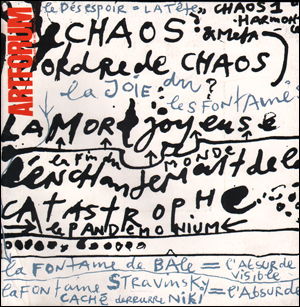 ARTFORUM
le DÉSESPOIR = LA TÊTE
CHAOS 1
HARMONI
le CHAOS à META
ordre de CHAOS
la JOIE du ?
les FONTAINES
LA MORT joyeuse
la fin du MONDE
l'ENCHANTEMENT de la
CATASTROPHE
le PANDEMONIUM
la FONTAINE de BALE = l'ABSURDE
VISIBLE
la FONTAINE STRAVINSKY = l'ABSURDE
CACHÉ derrière NIKI